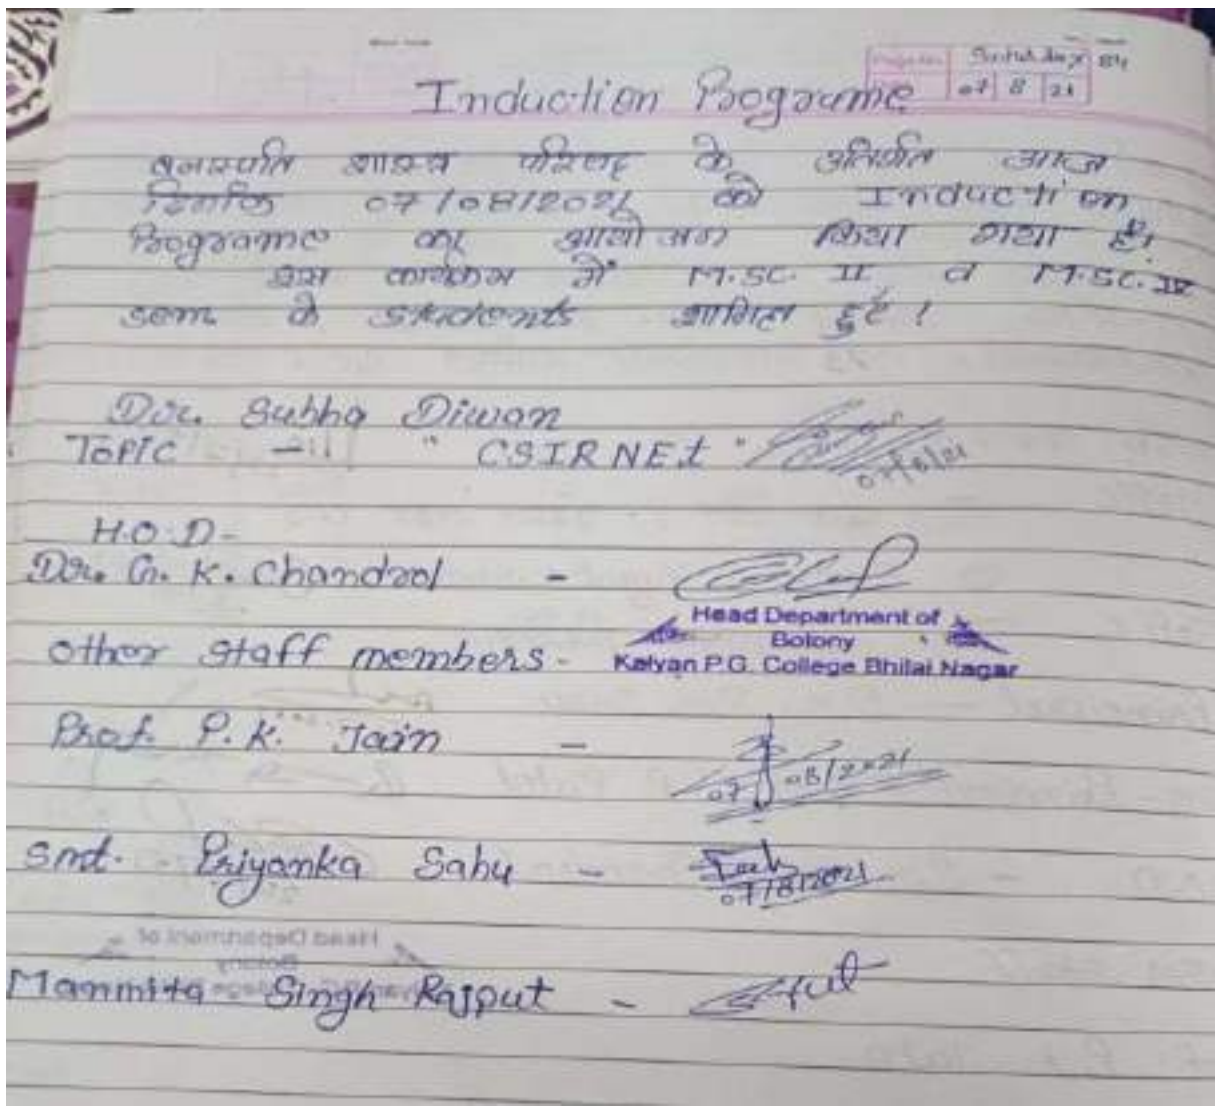 Saturday 84
07 8 21
Induction Programe
वनस्पति शास्त्र परिषद के अंतर्गत आज
दिनांक 07/08/2021 को Induction
Programe का आयोजन किया गया है।
इस कार्यक्रम में M.SC. II व M.SC. IV
sem के students शामिल हुए ।
Dr. Subha Diwan
TOPIC - " CSIR NEt "
07/8/21
H.O.D-
Dr. G. K. Chandrol -
Head Department of
Botony
Kalyan P.G. College Bhilai Nagar
other staff members -
Prof. P. K. Jain -
07/08/2021
Smt. Priyanka Sahu -
07/8/2021
Manmita Singh Rajput -